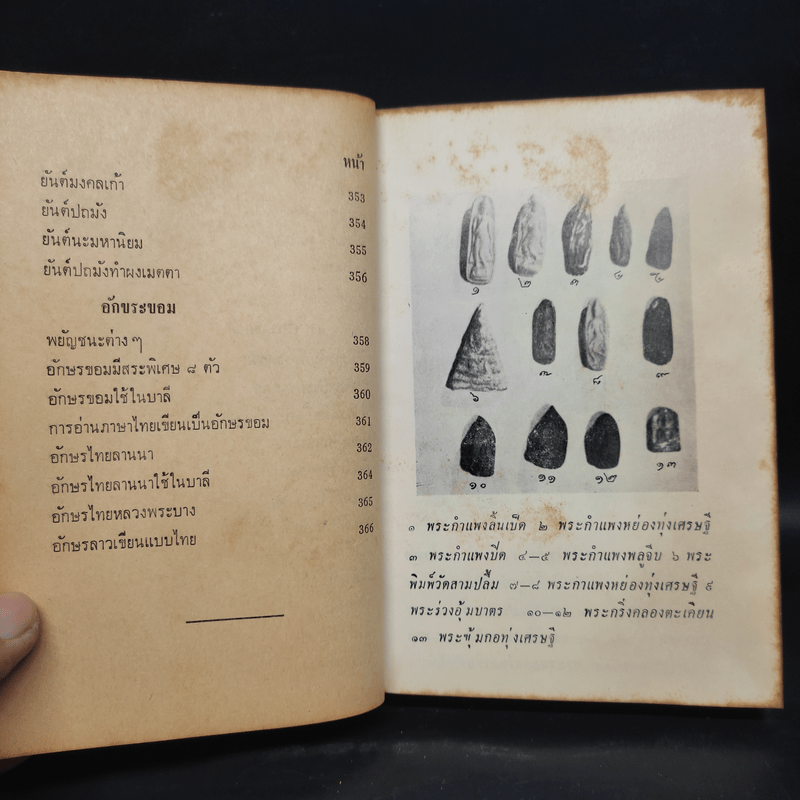 หน้า
ยันต์มงคลเก้า 353
ยันต์ปถมัง 354
ยันต์นะมหานิยม 355
ยันต์ปถมังทำผงเมตตา 356
อักขระขอม
พยัญชนะต่าง ๆ 358
อักษรขอมมีสระพิเศษ ๘ ตัว 359
อักษรขอมใช้ในบาลี 360
การอ่านภาษาไทยเขียนเป็นอักษรขอม 361
อักษรไทยลานนา 362
อักษรไทยลานนาใช้ในบาลี 364
อักษรไทยหลวงพระบาง 365
อักษรลาวเขียนแบบไทย 366
๑ ๒ ๓ ๔ ๕
๖ ๗ ๘ ๙
๑๐ ๑๑ ๑๒ ๑๓
๑ พระกำแพงลิ้นเป็ด ๒ พระกำแพงหย่องทุ่งเศรษฐี
๓ พระกำแพงปิด ๔-๕ พระกำแพงพลูจีบ ๖ พระ
พิมพ์วัดสามปลื้ม ๗-๘ พระกำแพงหย่องทุ่งเศรษฐี ๙
พระร่วงอุ้มบาตร ๑๐-๑๒ พระกริ่งคลองตะเคียน
๑๓ พระซุ้มกอทุ่งเศรษฐี